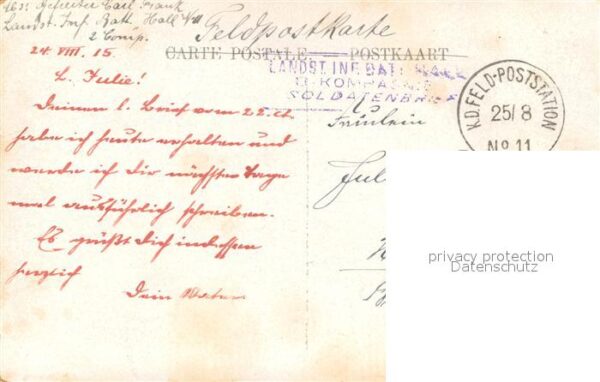 Carl Frank
Landst. Inf. Batt. Hall
2 Comp.
Feldpostkarte
CARTE POSTALE POSTKAART
24. VIII. 15.
LANDST. INF. BATL. HALL
SOLDATENBRIEF
K.D. FELD-POSTSTATION
25/8
No 11
L. Julie!
Deinen l. Brief vom 22. ds.
habe ich heute erhalten und
werde ich dir nächster Tage
mal ausführlich schreiben.
Es grüßt Dich indessen
herzlich
Dein Vater
Fräulein
Jul
privacy protection
Datenschutz